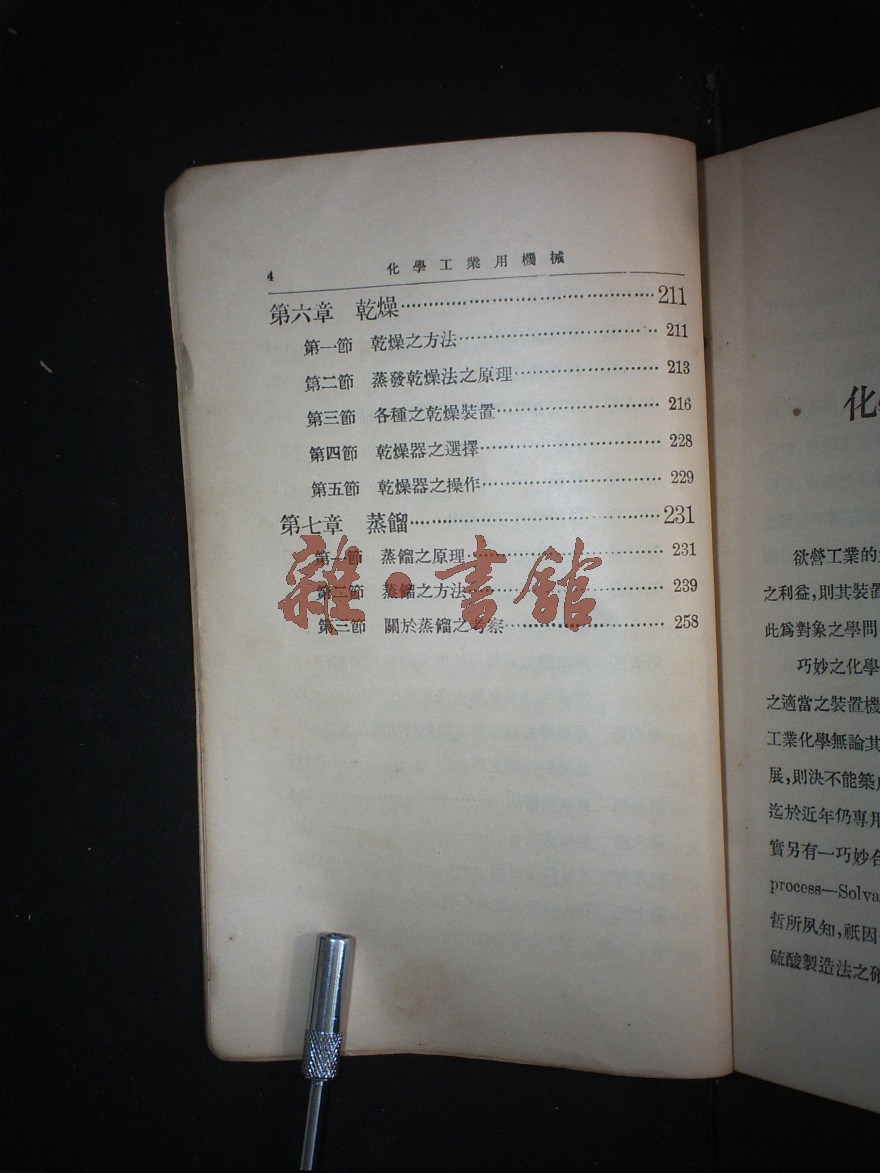 4 化學工業用機械
第六章 乾燥……211
第一節 乾燥之方法……211
第二節 蒸發乾燥法之原理……213
第三節 各種之乾燥裝置……216
第四節 乾燥器之選擇……228
第五節 乾燥器之操作……229
第七章 蒸餾……231
第一節 蒸餾之原理……231
第二節 蒸餾之方法……239
第三節 關於蒸餾之考察……258
雜·書館
化學
欲營工業的
之利益,則其裝置
此爲對象之學問
巧妙之化學
之適當之裝置機
工業化學無論其
展,則決不能築
迄於近年仍專用
實另有一巧妙合
process—Solva
哲所夙知,祇因
硫酸製造法之